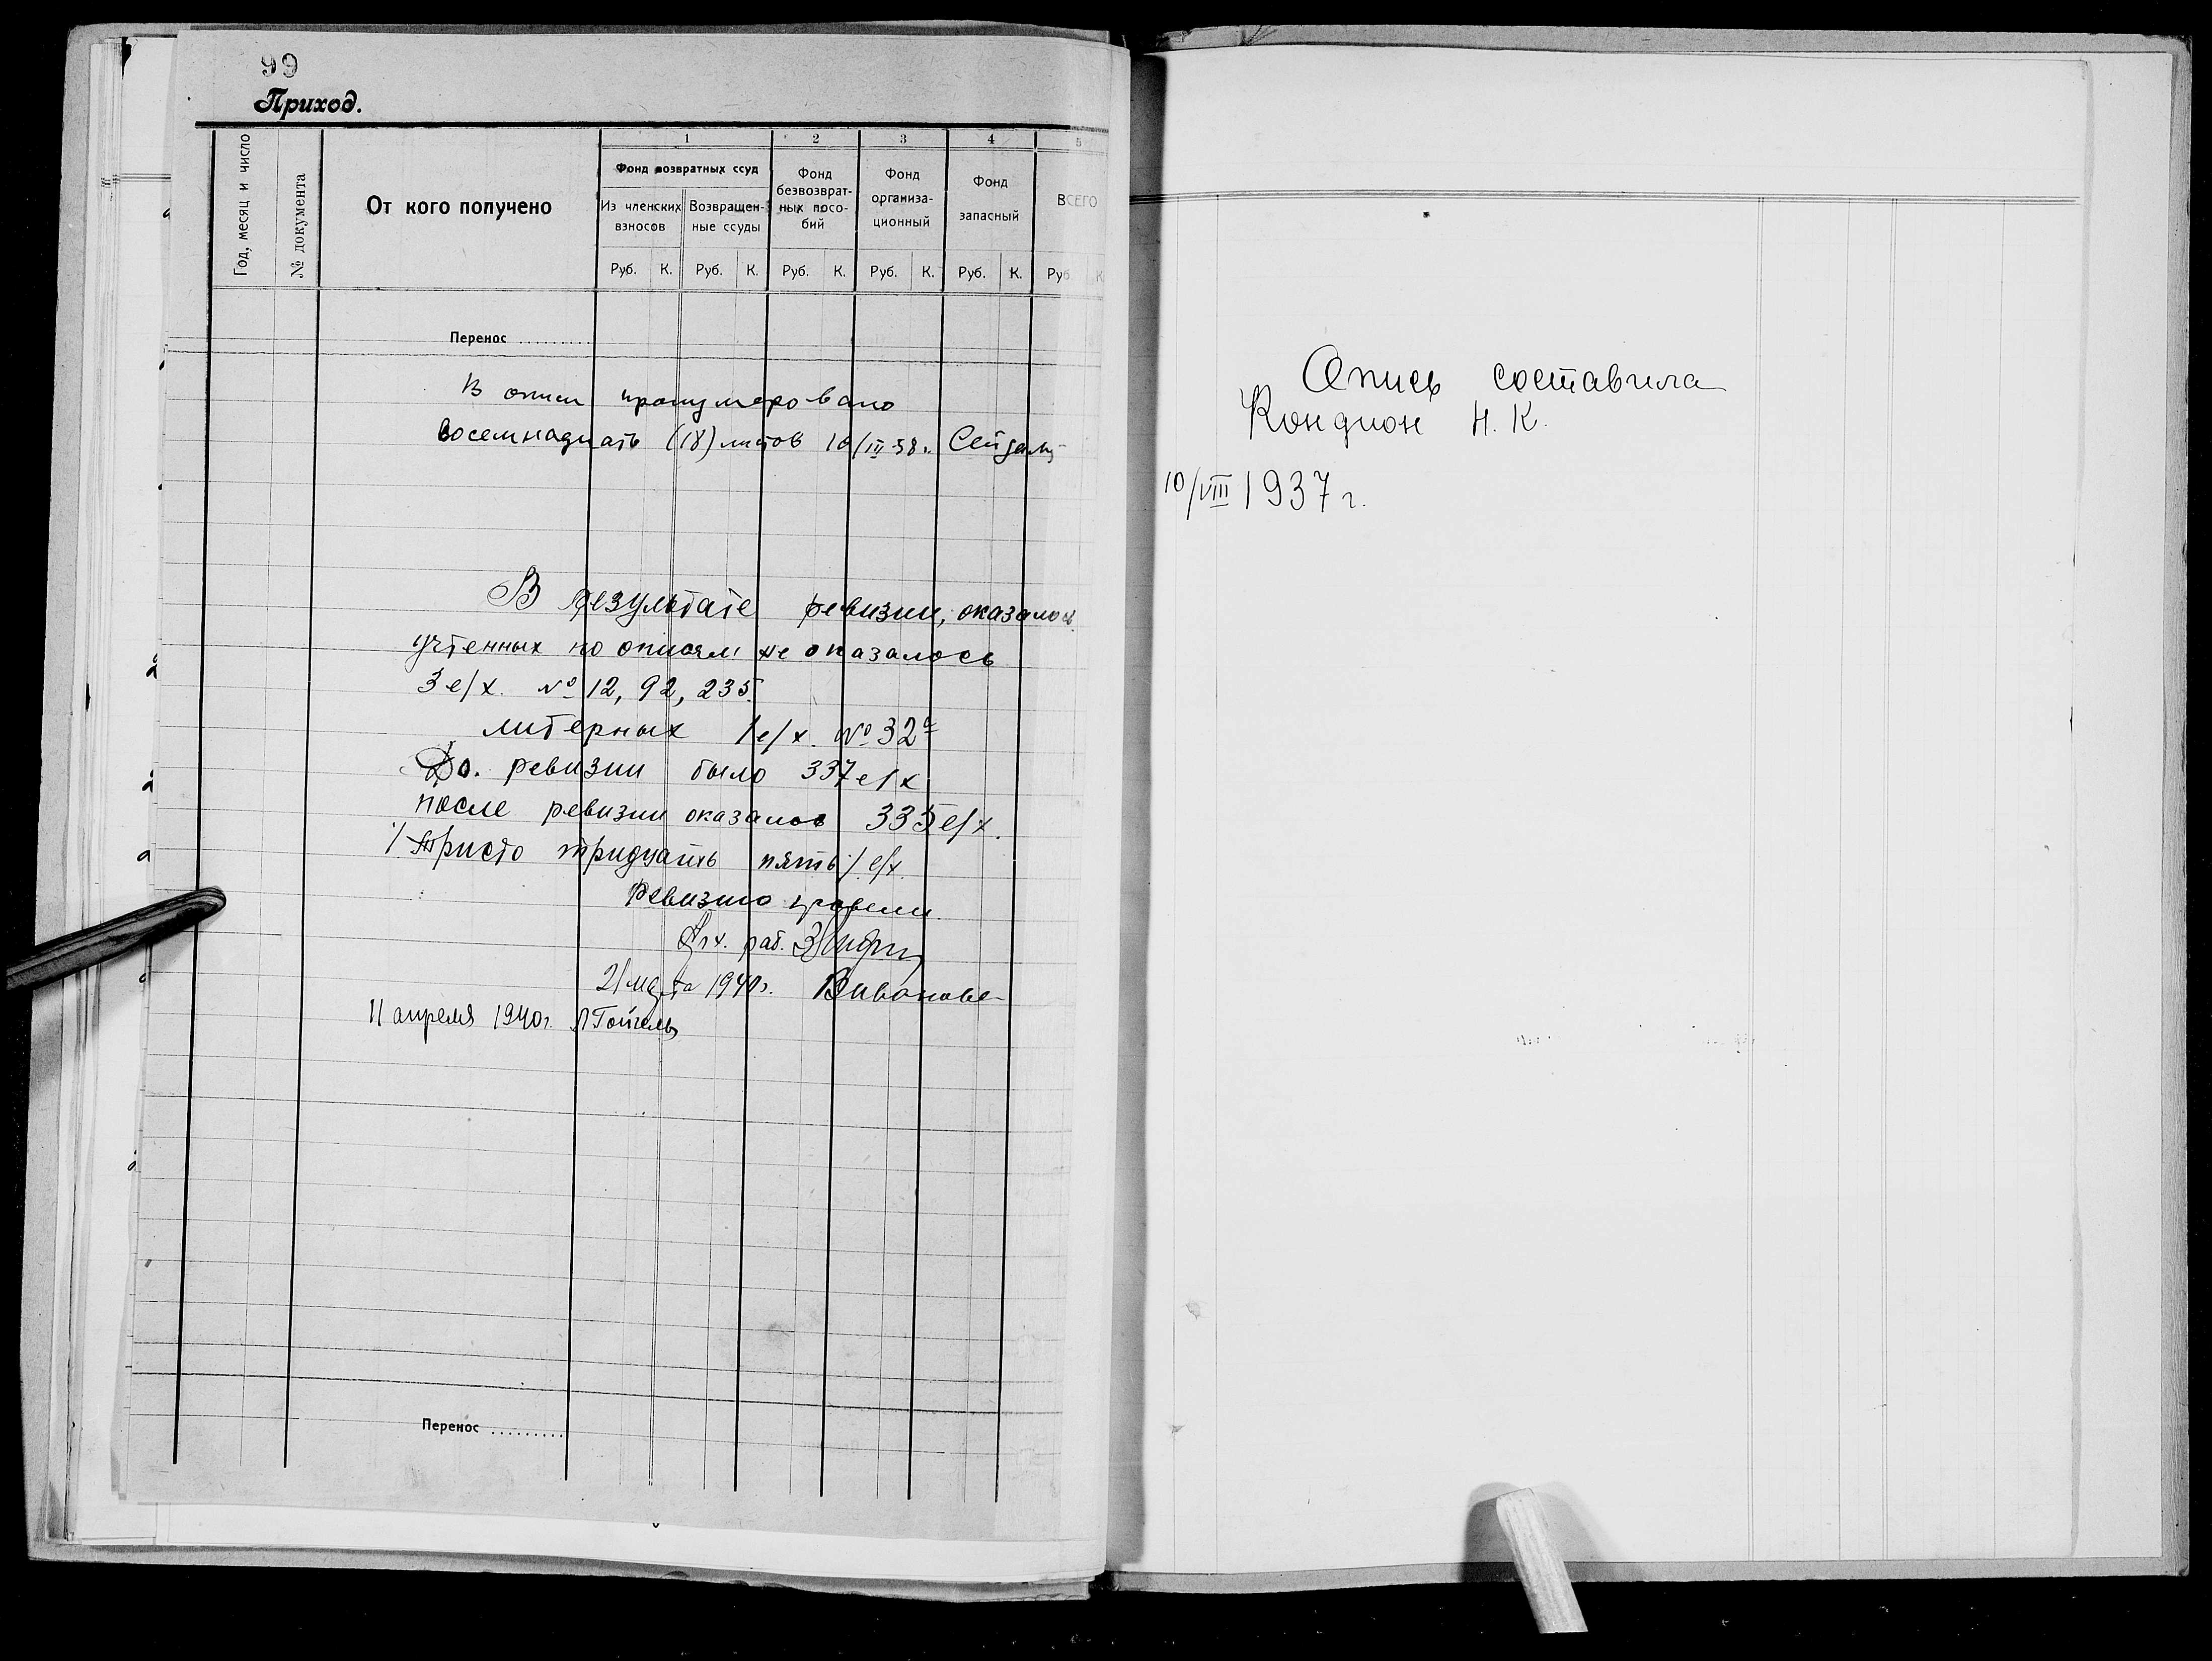 99
Приход.
Год, месяц и число
№ документа
От кого получено
1
2
3
4
5
Фонд возвратных ссуд
Из членских взносов
Возвращен-
ные ссуды
Фонд
безвозврат-
ных посо-
бий
Фонд
организа-
ционный
Фонд
запасный
ВСЕГО
Руб. К. Руб. К. Руб. К. Руб. К. Руб. К. Руб. К
Перенос ..........
В описи пронумеровано
восемнадцать (18) листов 10/III 38 г.
В результате ревизии, оказалось
учтенных по описям не оказалось
3 е/х. № 12, 92, 235.
литерных 1 е/х. № 32а
До. ревизии было 337 е/х
после ревизии оказалос 335 е/х.
/. Тристо тридцать пять ./ е/х.
Ревизию провели
Арх. раб.
21 марта 1940 г. Виванова
11 апреля 1940 г.
Перенос .........
Опись составила
Кондион Н. К.
10/VIII 1937 г.